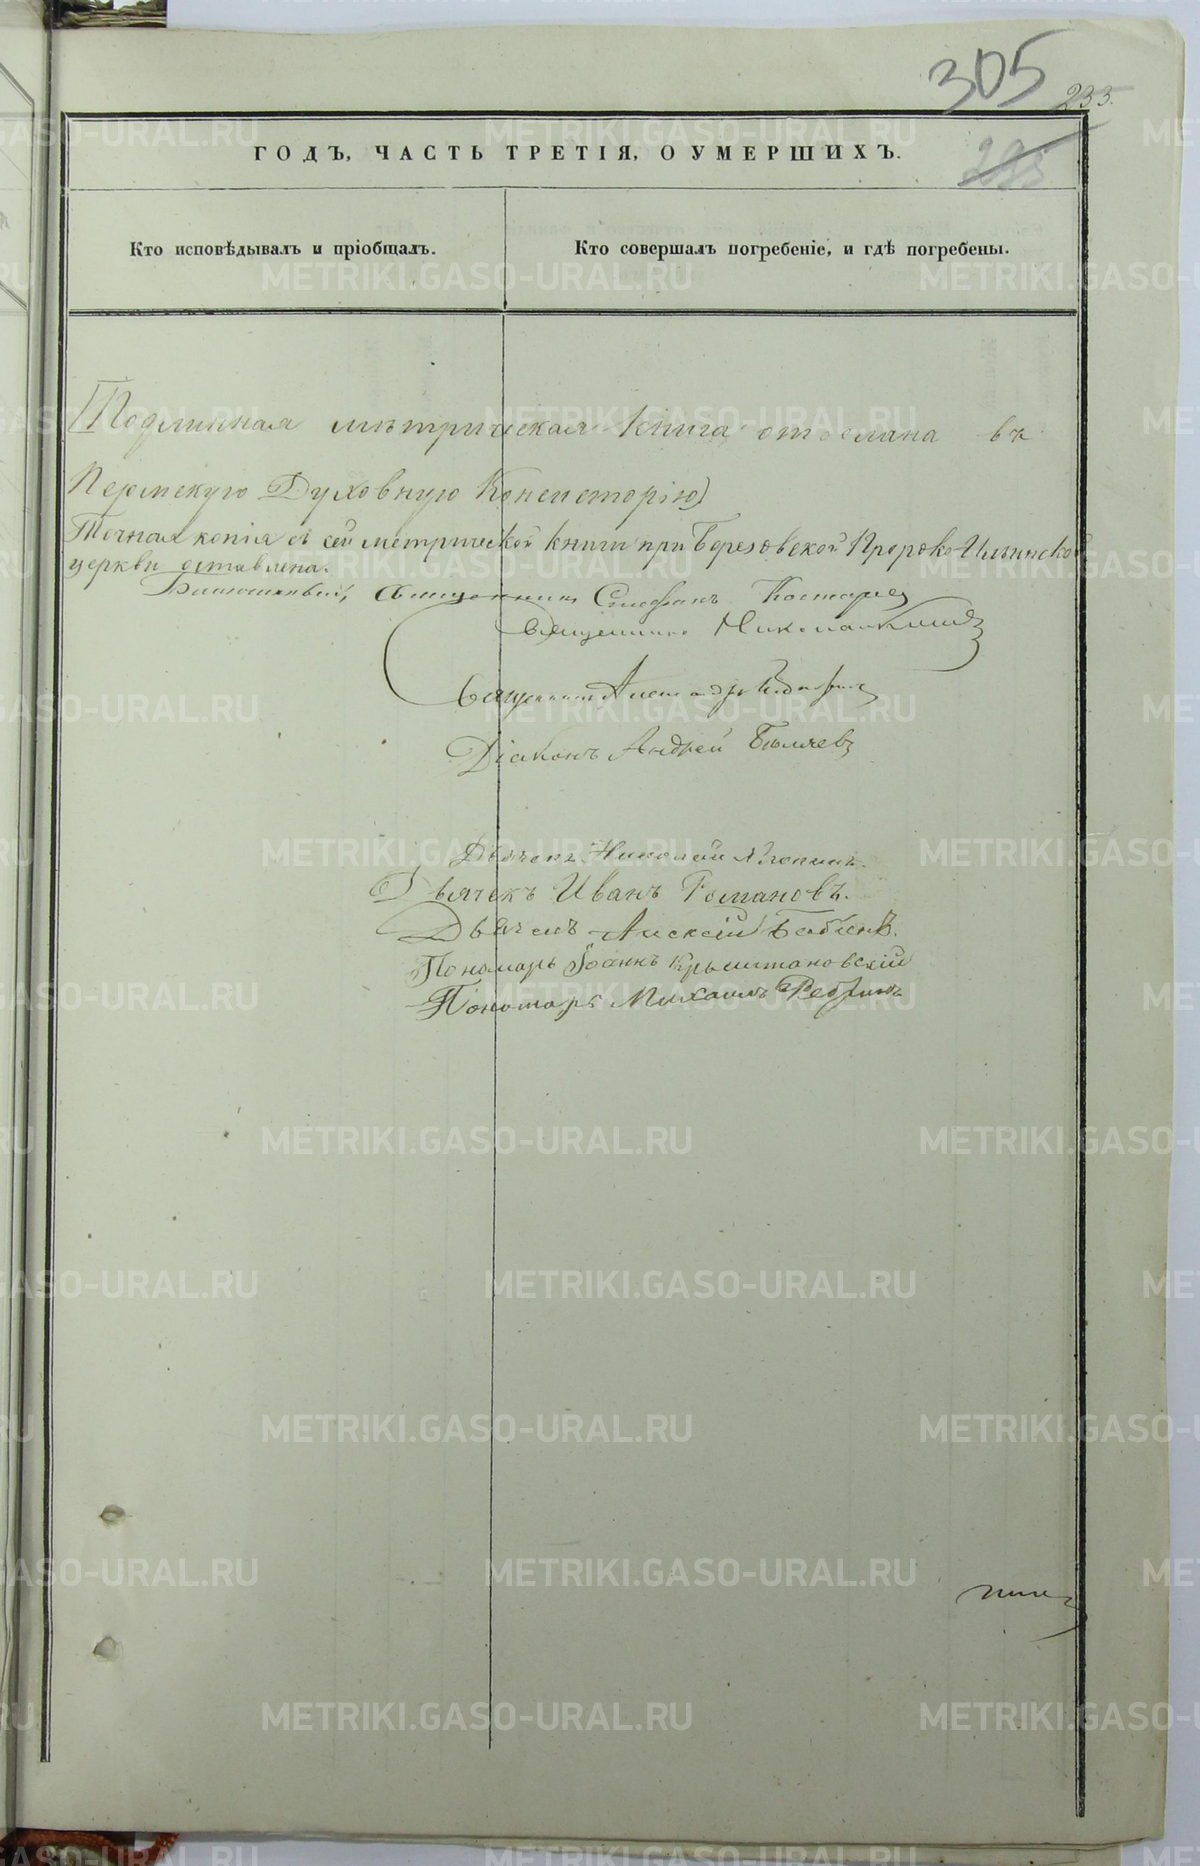 305
233.
ГОДЪ, ЧАСТЬ ТРЕТІЯ, О УМЕРШИХЪ.
Кто исповѣдывалъ и пріобщалъ.
Кто совершалъ погребеніе, и гдѣ погребены.
(Подлинная метрическая книга отослана въ
Пермскую Духовную Консисторію)
Точная копія съ сей метрической книги при Березовской Пророко-Ильинской
церкви оставлена.
Священникъ Стефанъ
Священникъ Николай
Священникъ Александръ
Діаконъ Андрей
Дьячекъ Николай
Дьячекъ Иванъ Романовъ.
Дьячекъ Алексій
Пономарь Іоаннъ Крыштановскій
Пономарь Михаилъ
METRIKI.GASO-URAL.RU